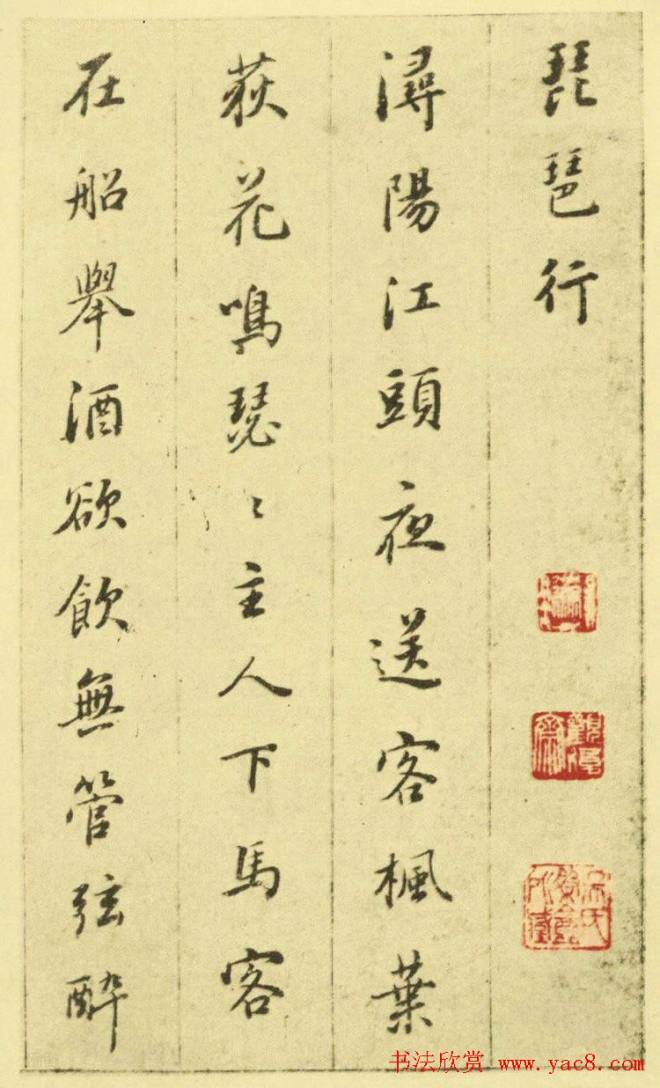 琵琶行
潯陽江頭夜送客楓葉
荻花鳴瑟〻主人下馬客
在船舉酒欲飲無管弦醉
书法欣赏 www.yac8.com